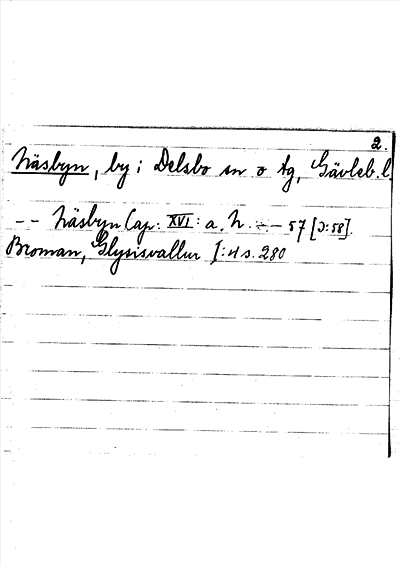 2.
Näsbyn, by i Delsbo sn o tg, Gävleb. l.
-- Näsbyn Cap: XVI: a. N. -.-- 57 [J:58].
Broman, Glysisvallur I: 4 s. 280